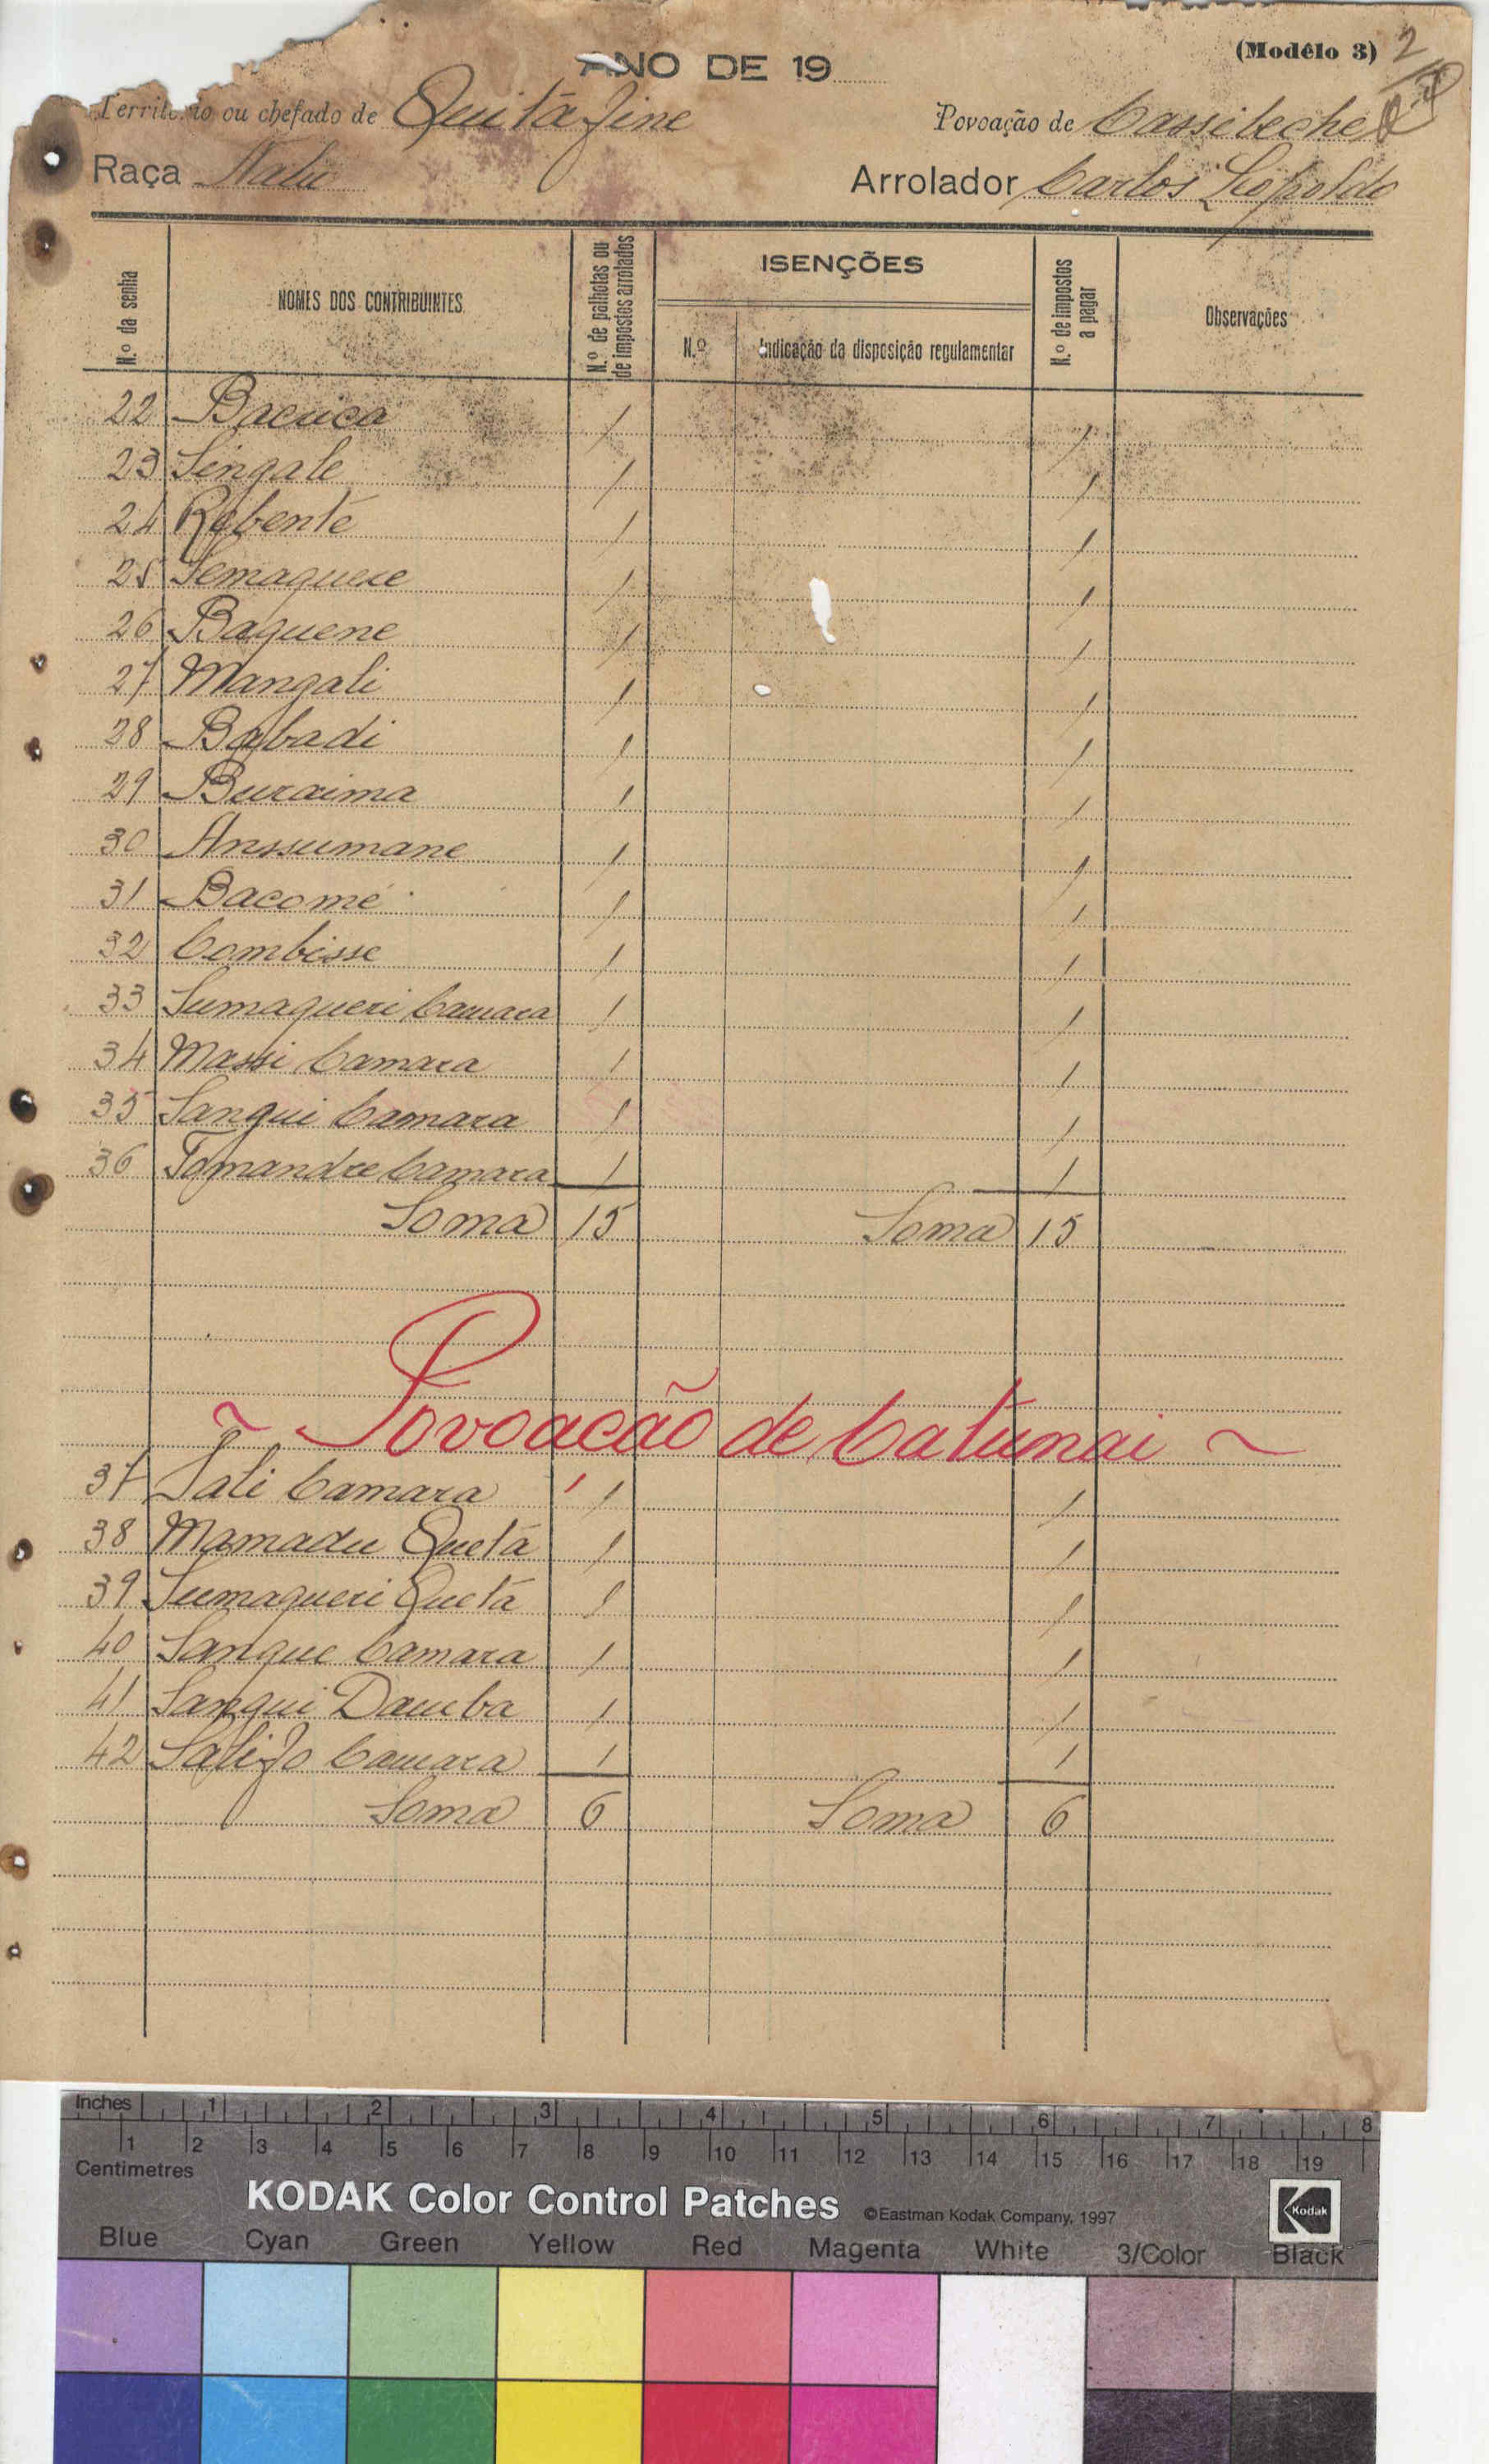 (Modêlo 3) 2
ANO DE 19
Territorio ou chefado de Quitafine Povoação de Cassibeche
Raça Nalú Arrolador Carlos Leopoldo
N.º da senha
NOMES DOS CONTRIBUINTES
N.º de palhotas ou de impostos arrolados
ISENÇÕES
N.º
Indicação da disposição regulamentar
N.º de impostos a pagar
Observações
22 Bacuca 1 1
23 Singale 1 1
24 Rebente 1 1
25 Semaquere 1 1
26 Baquene 1 1
27 Mangali 1 1
28 Babadi 1 1
29 Buraima 1 1
30 Anssumane 1 1
31 Bacomé 1 1
32 Combisse 1 1
33 Sumaqueri Camara 1 1
34 Massi Camara 1 1
35 Sanqui Camara 1 1
36 Tomandre Camara 1 1
Soma 15 Soma 15
~ Povoacão de Catunai ~
37 Sali Camara 1 1
38 Mamadu Quetá 1 1
39 Sumaqueri Quetá 1 1
40 Sanque Camara 1 1
41 Sanqui Dauba 1 1
42 Salifo Camara 1 1
Soma 6 Soma 6
Inches 1 2 3 4 5 6 7 8
1 2 3 4 5 6 7 8 9 10 11 12 13 14 15 16 17 18 19
Centimetres
KODAK Color Control Patches ©Eastman Kodak Company, 1997 Kodak
Blue Cyan Green Yellow Red Magenta White 3/Color Black